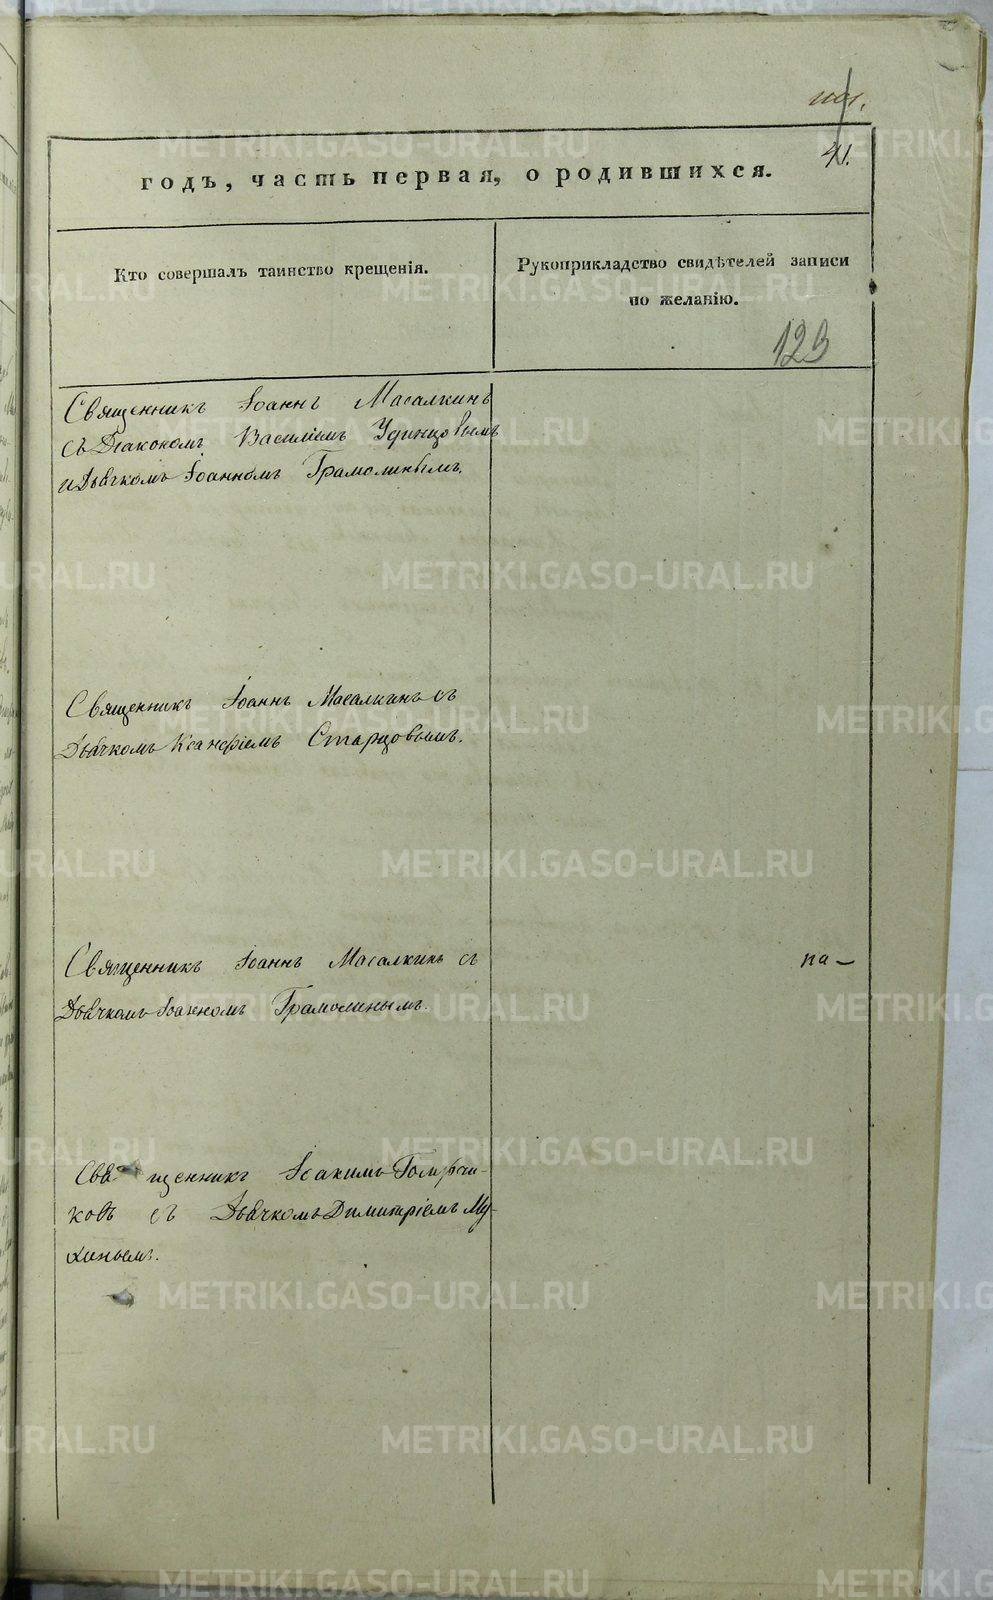 41.
годъ, часть первая, о родившихся.
Кто совершалъ таинство крещенія.
Рукоприкладство свидѣтелей записи
по желанію.
123
Священникъ Іоаннъ Масалкинъ
съ Діакономъ Василіемъ Удинцовымъ
и Дьячкомъ Іоанномъ Грамолинымъ.
Священникъ Іоаннъ Масалкинъ съ
Дьячкомъ Ксанѳіемъ Старцовымъ.
Священникъ Іоаннъ Масалкинъ съ
Дьячкомъ Іоанномъ Грамолинымъ.
па-
Священникъ Іоакимъ
ковъ съ Дьячкомъ Димитріемъ Му-
хинымъ.
METRIKI.GASO-URAL.RU